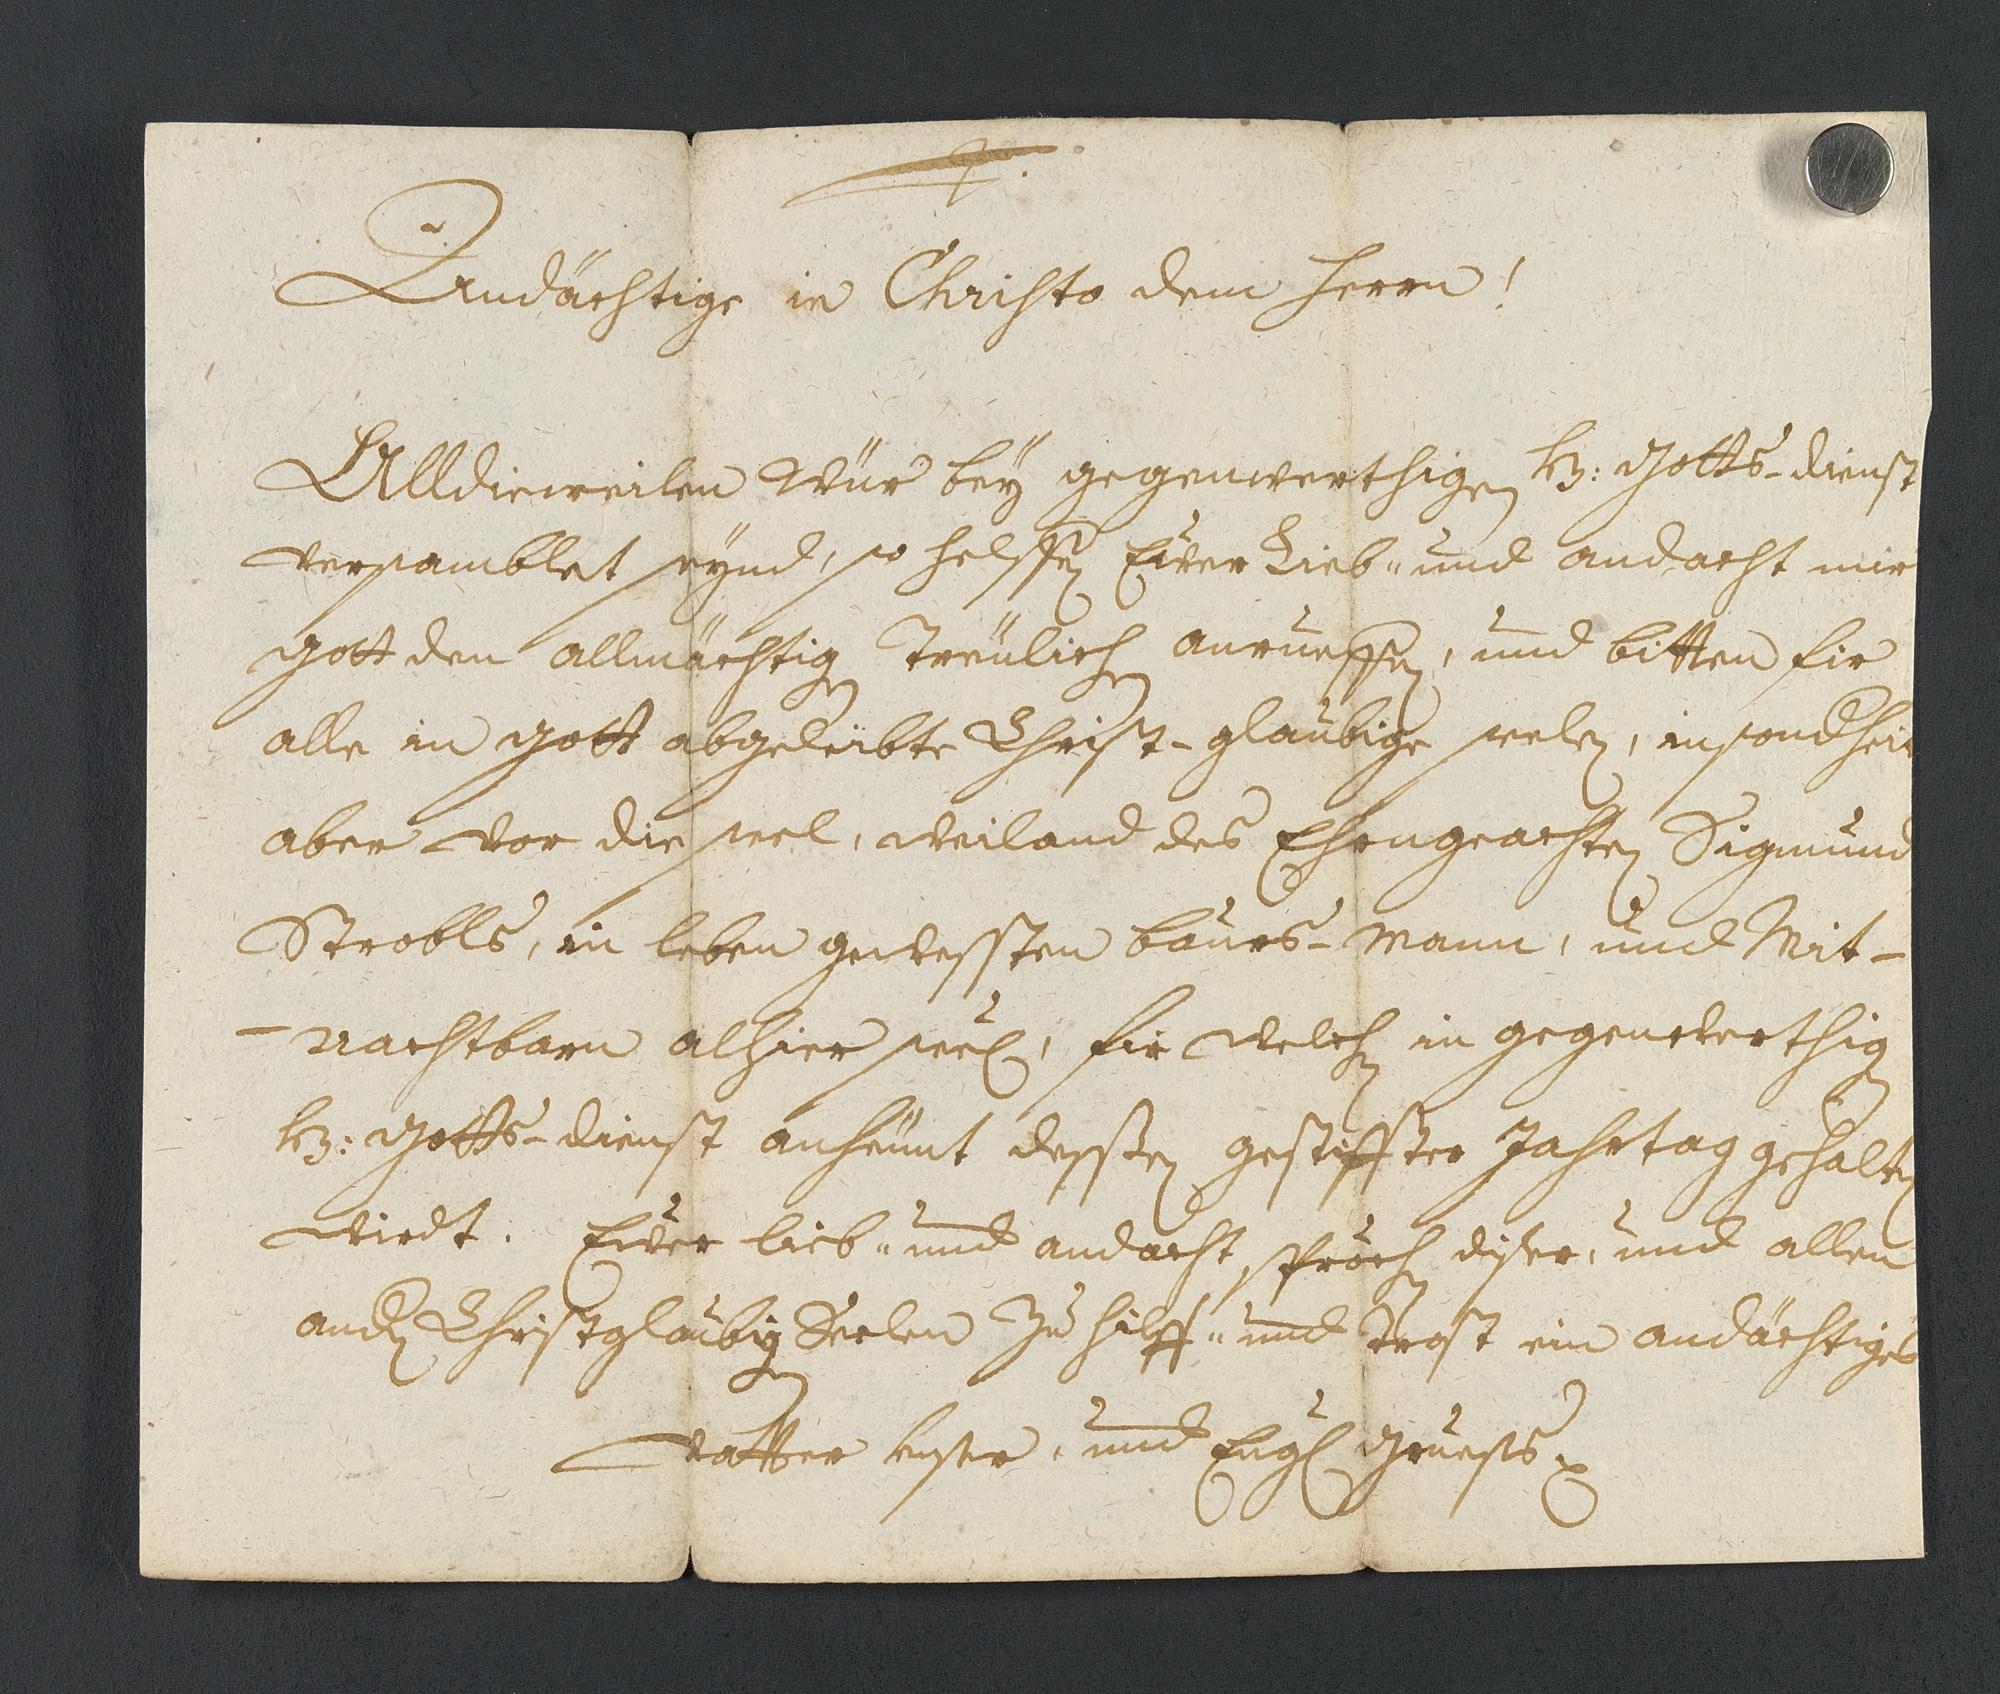 Andächtige in Christo dem Herrn!
Alldieweilen Wür beÿ gegenwerthigen hl: Gotts-dienst
versamblet seÿnd, so helffen Eüer Lieb- und andacht mir
Gott den allmächtigen Treülich anrueffen, und bitten fir
alle in Gott abgeleibte Christ-glaubige seelen, insonderheit
aber vor die seel, weiland des Ehrngeachten Sigmund
Strobls, in leben gewessten baurs-Mann, und Mit-
-nachtbarn alhier seel, fir welchen in gegenwerthigen
hl: Gotts-dienst anheünt dessen gestiffter Jahrtag gehalten
wirdt. Eüer lieb- und andacht, sprechen diser, und allen
andern Christglaubigen Seelen Zu hilff- und Trost ein andächtiges
vatter unser, und Engl Gruess